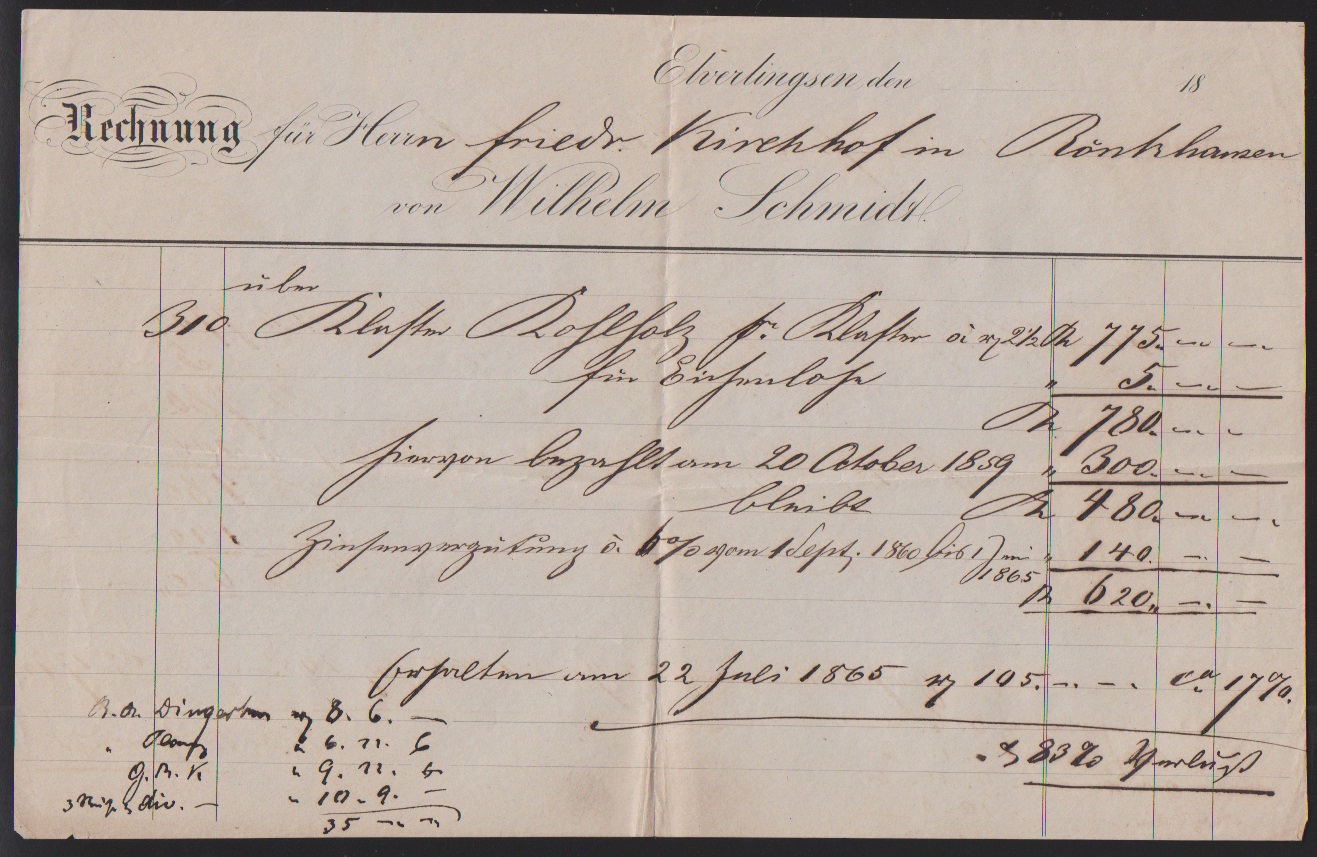 Elverlingsen, den 18
Rechnung für Herrn Friedr. Kirchhof in Rönkhausen
von Wilhelm Schmidt.
über
310 Klafter Kohlholz pr. Klafter à 2½ 775. — —
für Eichenlohe " 5. — —
780. — —
hiervon bezahlt am 20 October 1859 " 300. — —
bleibt 480. — —
Zinsenvergütung à 6% vom 1 Sept. 1860 bis 1 Juni 1865 " 140. — —
620. — —
Erhalten am 22 Juli 1865 105. — — ca 17%.
83% Verlust
8. 6. —
" " 6. 6
" 9.
div. — " 10. 9. —
35